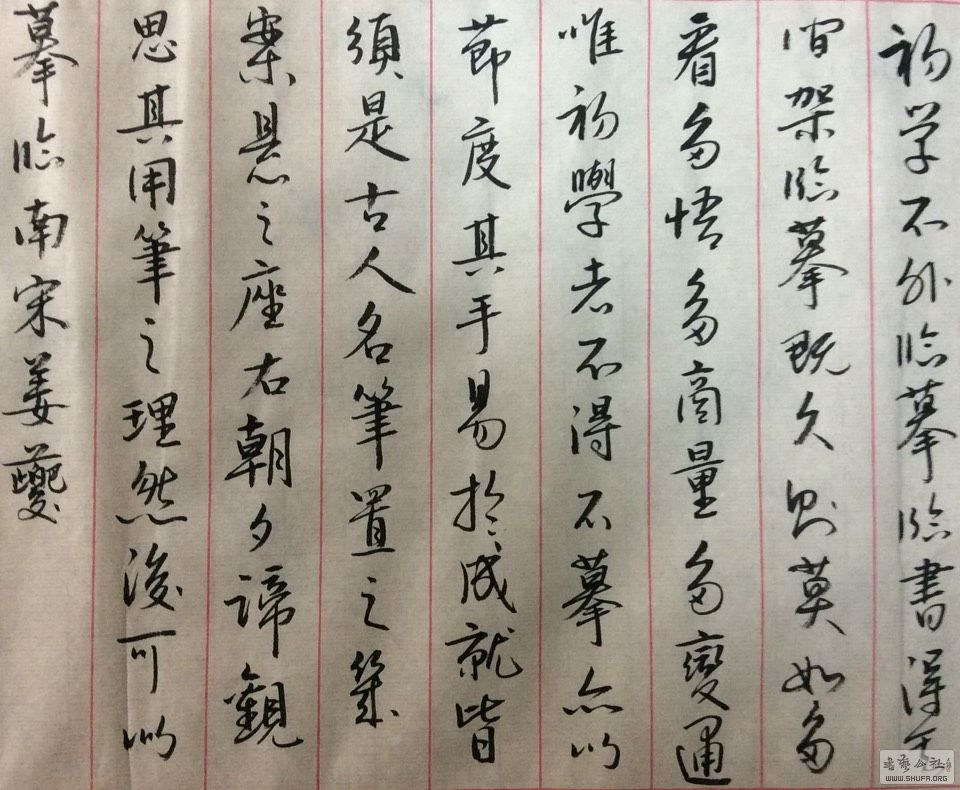 初学不外临摹临书得其
间架临摹既久则莫如多
看多悟多商量多變通
唯初學者不得不摹亦以
節度其手易於成就皆
須是古人名筆置之几
案悬之座右朝夕諦觀
思其用筆之理然後可以
摹临南宋姜夔
书艺公社
WWW.SHUFA.ORG